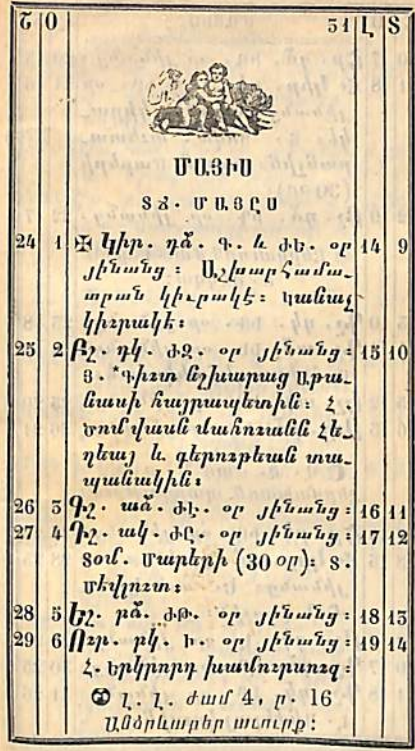 Շ Օ 31 Լ Տ
ՄԱՅԻՍ
ՏՃ. ՄԱՅԸՍ
24 1 ✠ Կիր. դձ. Գ. և ԺԵ. օր 14 9
յինանց : Աշխարհամա–
տրան կիւրակէ : Կանաչ
կիւրակէ :
25 2 Բշ. դկ. ԺԶ. օր յինանց : 15 10
Յ. *Գիւտ նշխարաց Աթա–
նասի հայրապետին : Հ.
Ծոմ վասն մահուանն Հե–
ղեայ և գերութեան տա–
պանակին :
26 3 Գշ. աձ. ԺԷ. օր յինանց : 16 11
27 4 Դշ. ակ. ԺԸ. օր յինանց : 17 12
Տօմ. Մարերի (30 օր) : Տ.
Մեվլուտ :
28 5 Եշ. բձ. ԺԹ. օր յինանց : 18 13
29 6 Ուր. բկ. Ի. օր յինանց : 19 14
Հ. Երկրորդ խամուրսուզ :
Լ. Լ. ժամ 4, ր. 16
Անձրևաբեր աւուրք :